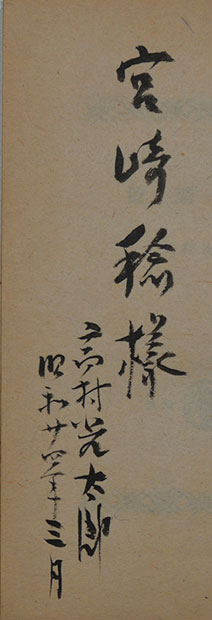 宮崎稔様
高村光太郎
昭和廿四年三月